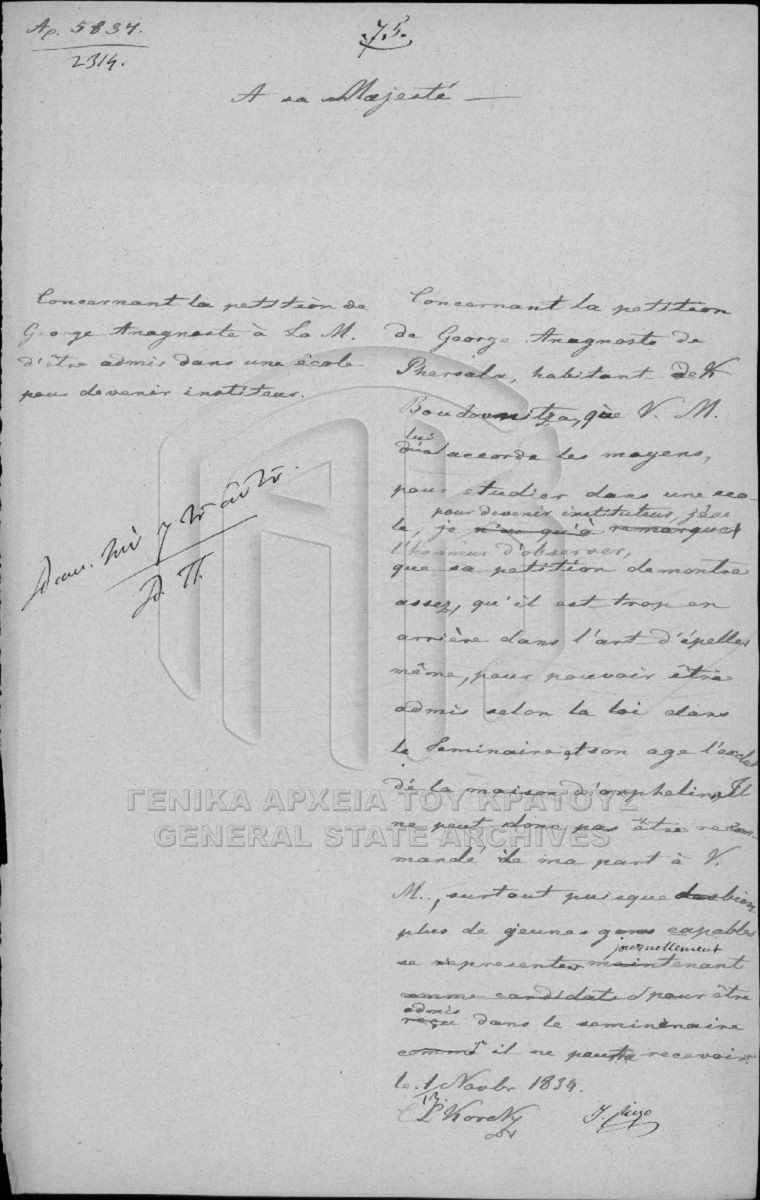 Αρ. 5834.
2314.
75.
A sa Majesté —
Concernant la petition de
George Anagnoste à La M.
d'être admis dans une école
pour devenir instituteur.
Concernant la petition
de George Anagnoste de
Phersala, habitant de
Boudounitza, que V. M.
lui accorde les moyens,
pour etudier dans une eco-
pour devenir instituteur, j'ose
le, je n'ai qu'à remarquer
l'honneur d'observer,
que sa petition demontre
assez, qu'il est trop en
arrière dans l'art d'épeller
même, pour pouvoir être
admis selon la loi dans
le Seminaire, et son age l'exclut
de la maison d'orphelins. Il
ne peut donc pas être recom-
mandé de ma part à V.
M., surtout puisque des bien
plus de jeunes gens capables
journellement
se representent maintenant
comme candidats pour être
admis
reçu dans le seminenaire
comme il ne peut recevoir.
le 1 Novbr 1834.
13.
ΓΕΝΙΚΑ ΑΡΧΕΙΑ ΤΟΥ ΚΡΑΤΟΥΣ
GENERAL STATE ARCHIVES